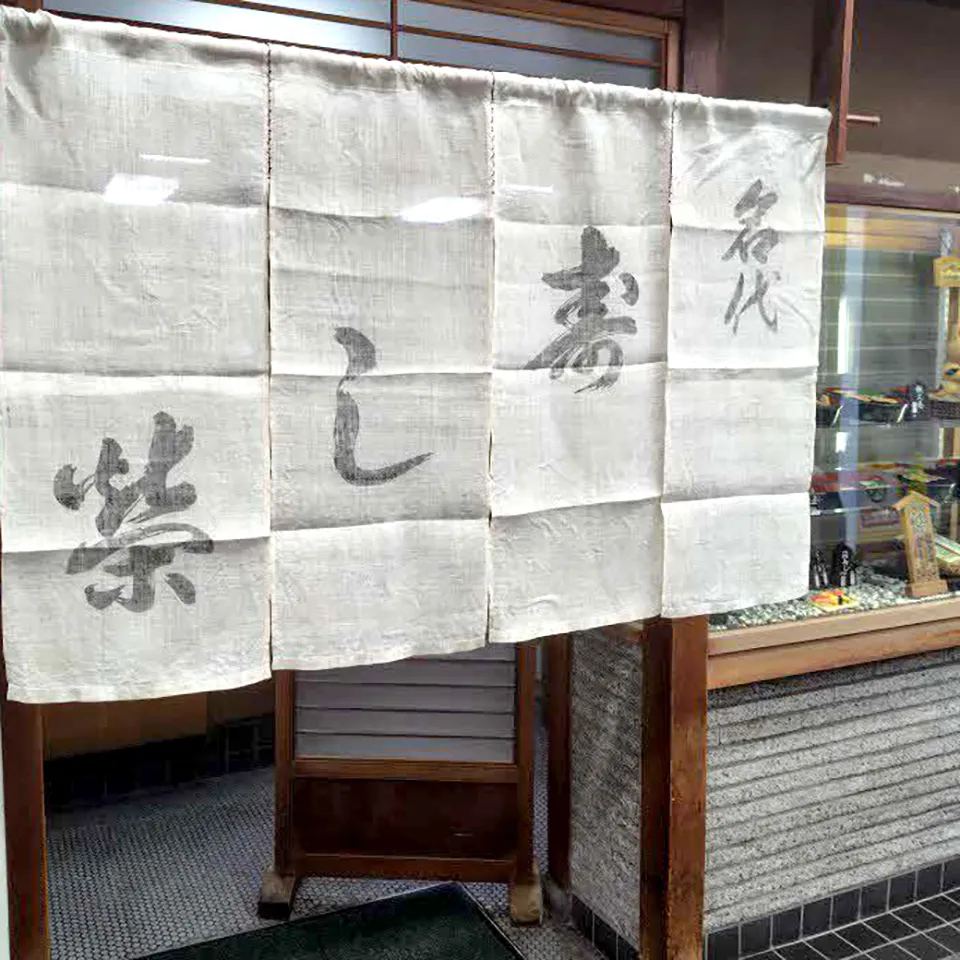 名代
寿
し
栄